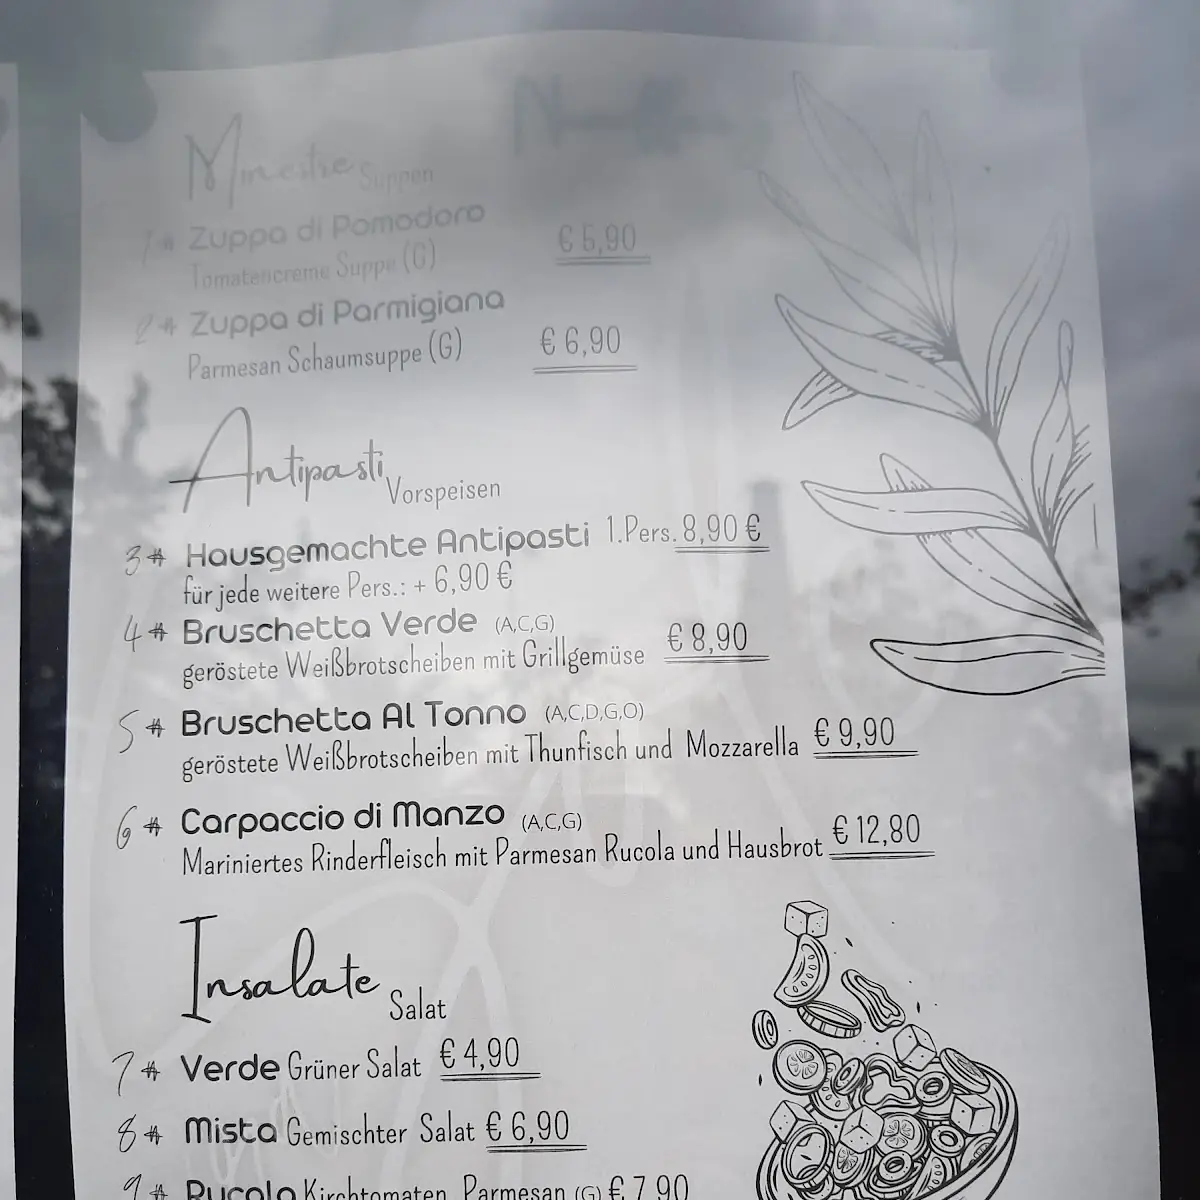 Minestre Suppen
1# Zuppa di Pomodoro
Tomatencreme Suppe (G) € 5,90
2# Zuppa di Parmigiana
Parmesan Schaumsuppe (G) € 6,90
Antipasti Vorspeisen
3# Hausgemachte Antipasti 1.Pers. 8,90 €
für jede weitere Pers.: + 6,90 €
4# Bruschetta Verde (A,C,G)
geröstete Weißbrotscheiben mit Grillgemüse € 8,90
5# Bruschetta Al Tonno (A,C,D,G,O)
geröstete Weißbrotscheiben mit Thunfisch und Mozzarella € 9,90
6# Carpaccio di Manzo (A,C,G)
Mariniertes Rinderfleisch mit Parmesan Rucola und Hausbrot € 12,80
Insalate Salat
7# Verde Grüner Salat € 4,90
8# Mista Gemischter Salat € 6,90
9# Rucola Kirchtomaten, Parmesan (G) € 7,90